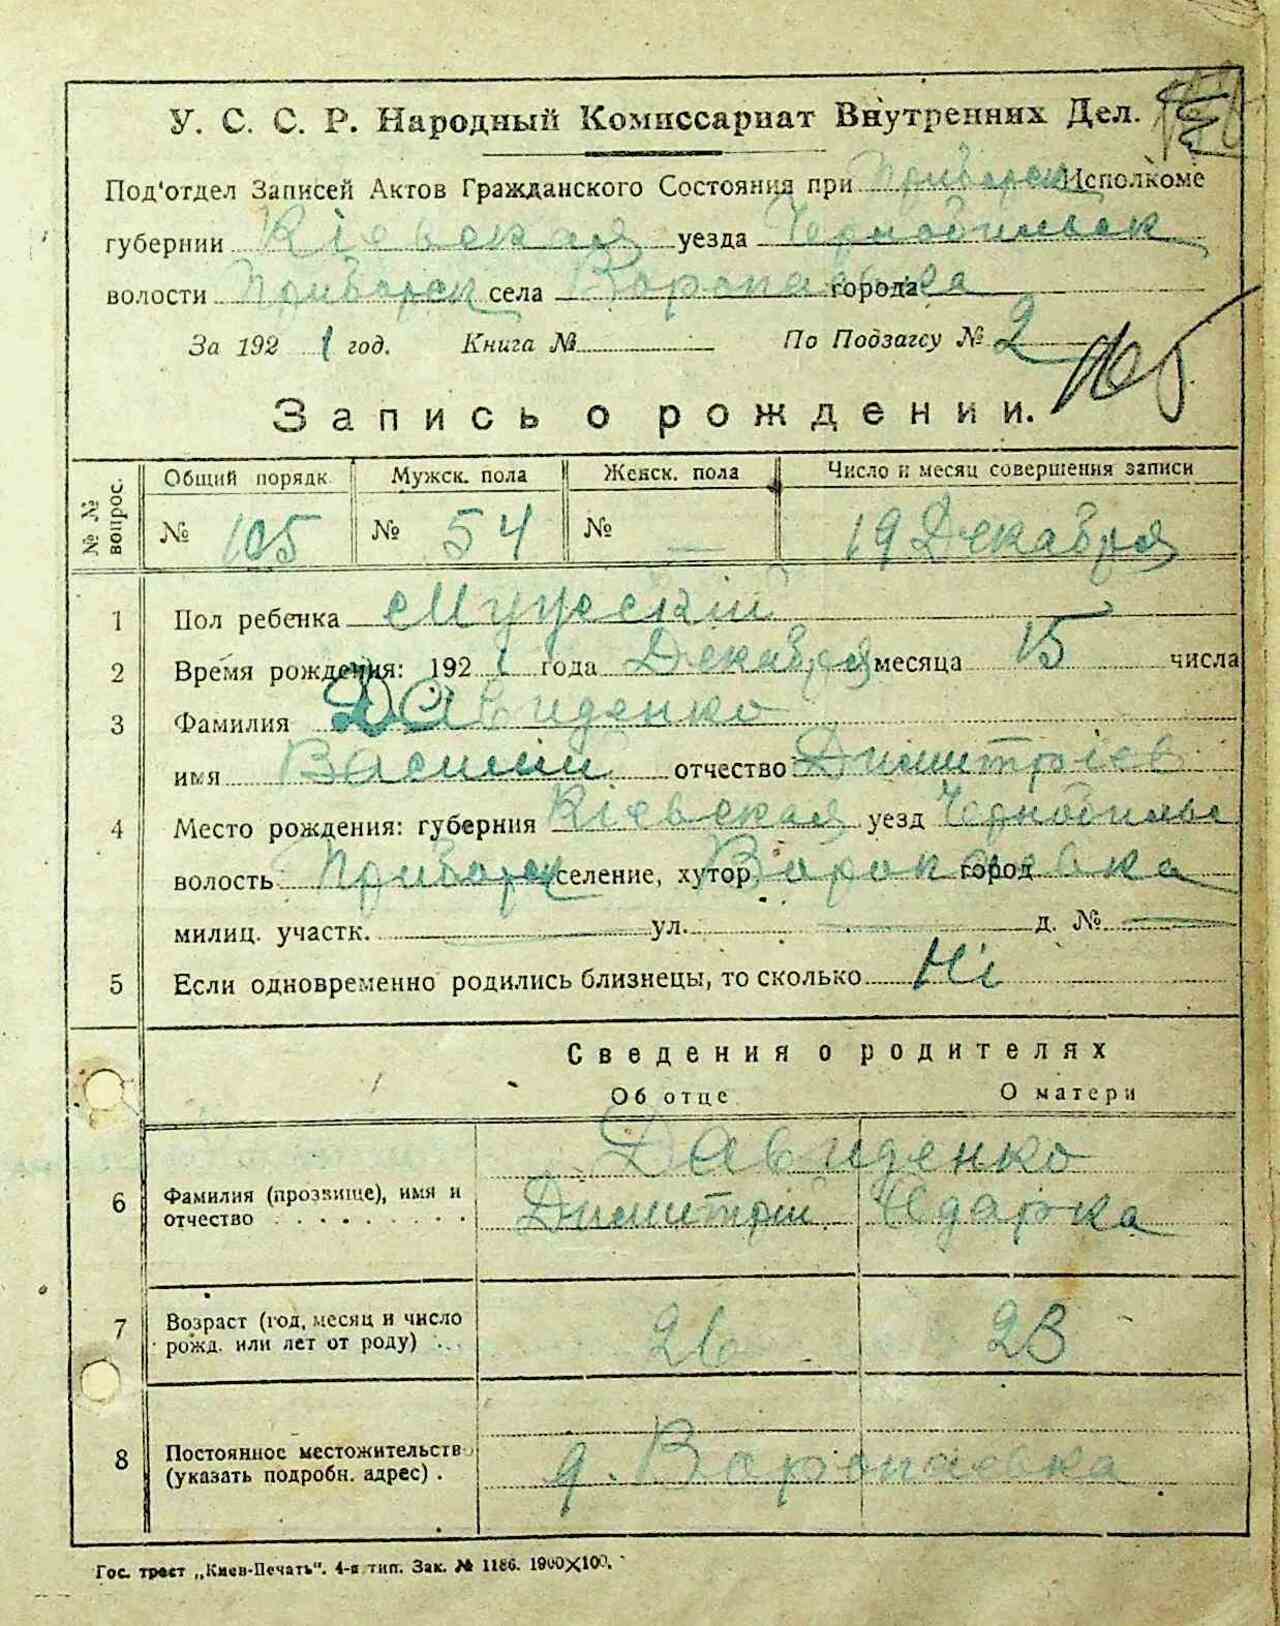 У. С. С. Р. Народный Комиссариат Внутренних Дел.
Под'отдел Записей Актов Гражданского Состояния при Приборск Исполкоме
губернии Кіевская уезда Чернобильск
волости Приборск села Воропаевка города
За 1921 год. Книга № По Подзагсу № 2
Запись о рождении.
№ № вопрос. Общий порядк. Мужск. пола Женск. пола Число и месяц совершения записи
№ 105 № 54 № — 19 Декабря
1 Пол ребенка Мужескій
2 Время рождения: 1921 года Декабря месяца 15 числа
3 Фамилия Давиденко
имя Василий отчество Димитріев
4 Место рождения: губерния Кіевская уезд Чернобильс
волость Приборск селение, хутор Воропаевка город
милиц. участк. — ул. — д. № —
5 Если одновременно родились близнецы, то сколько Ні
Сведения о родителях
Об отце О матери
Давиденко
6 Фамилия (прозвище), имя и отчество Димитрій Одарка
7 Возраст (год, месяц и число рожд. или лет от роду) 26 23
8 Постоянное местожительств (указать подробн. адрес). д. Воропаевка
Гос. трест „Киев-Печать“. 4-я тип. Зак. № 1186. 1900×100.